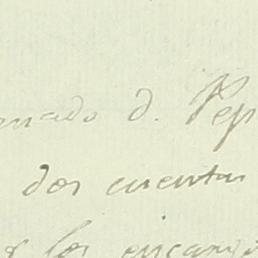 nado d. Pep
dos cuentas
los encar